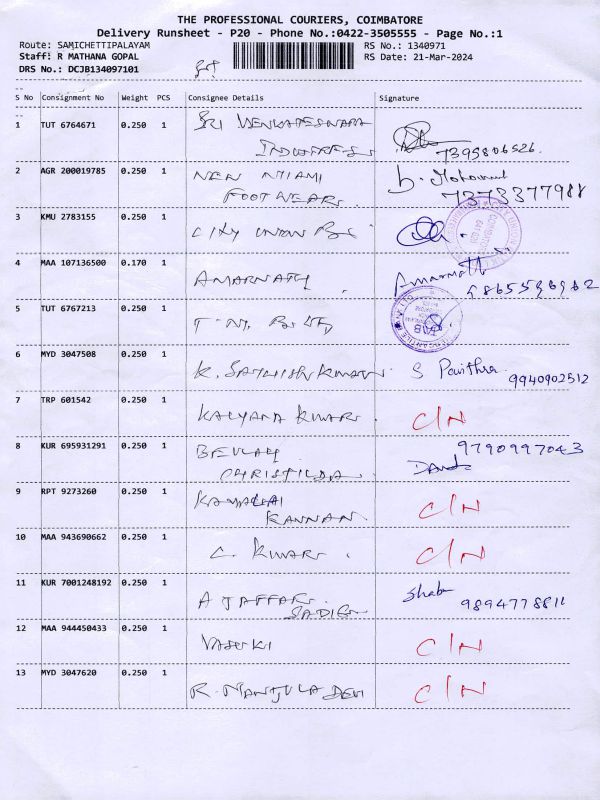 THE PROFESSIONAL COURIERS, COIMBATORE
Delivery Runsheet - P20 - Phone No.:0422-3505555 - Page No.:1
Route: SAMICHETTIPALAYAM RS No.: 1340971
Staff: R MATHANA GOPAL RS Date: 21-Mar-2024
DRS No.: DCJB134097101
S No Consignment No Weight PCS Consignee Details Signature
1 TUT 6764671 0.250 1 SRI VENKATESWARA
INDUSTRIES 7395806526.
2 AGR 200019785 0.250 1 NEW MIAMI b. Mohamed
FOOTWEAR. 7373377988
3 KMU 2783155 0.250 1 CITY UNION BK
4 MAA 107136500 0.170 1 AMARNATH. Amarnath
9865596962
5 TUT 6767213 0.250 1 T.M. BK LTD
6 MYD 3047508 0.250 1 K. SATHISH KUMAR. S Pavithra
9940902512
7 TRP 601542 0.250 1 KALYANA KUMAR. C/N
8 KUR 695931291 0.250 1 BEULAH 9790997043
CHRISTILDA. David
9 RPT 9273260 0.250 1 KAMALAI C/N
KANNAN.
10 MAA 943690662 0.250 1 C. KUMAR. C/N
11 KUR 7001248192 0.250 1 A JAFFAR Shab
SADIQ 9894778811
12 MAA 944450433 0.250 1 VASUKI C/N
13 MYD 3047620 0.250 1 R. MANJULA DEVI C/N